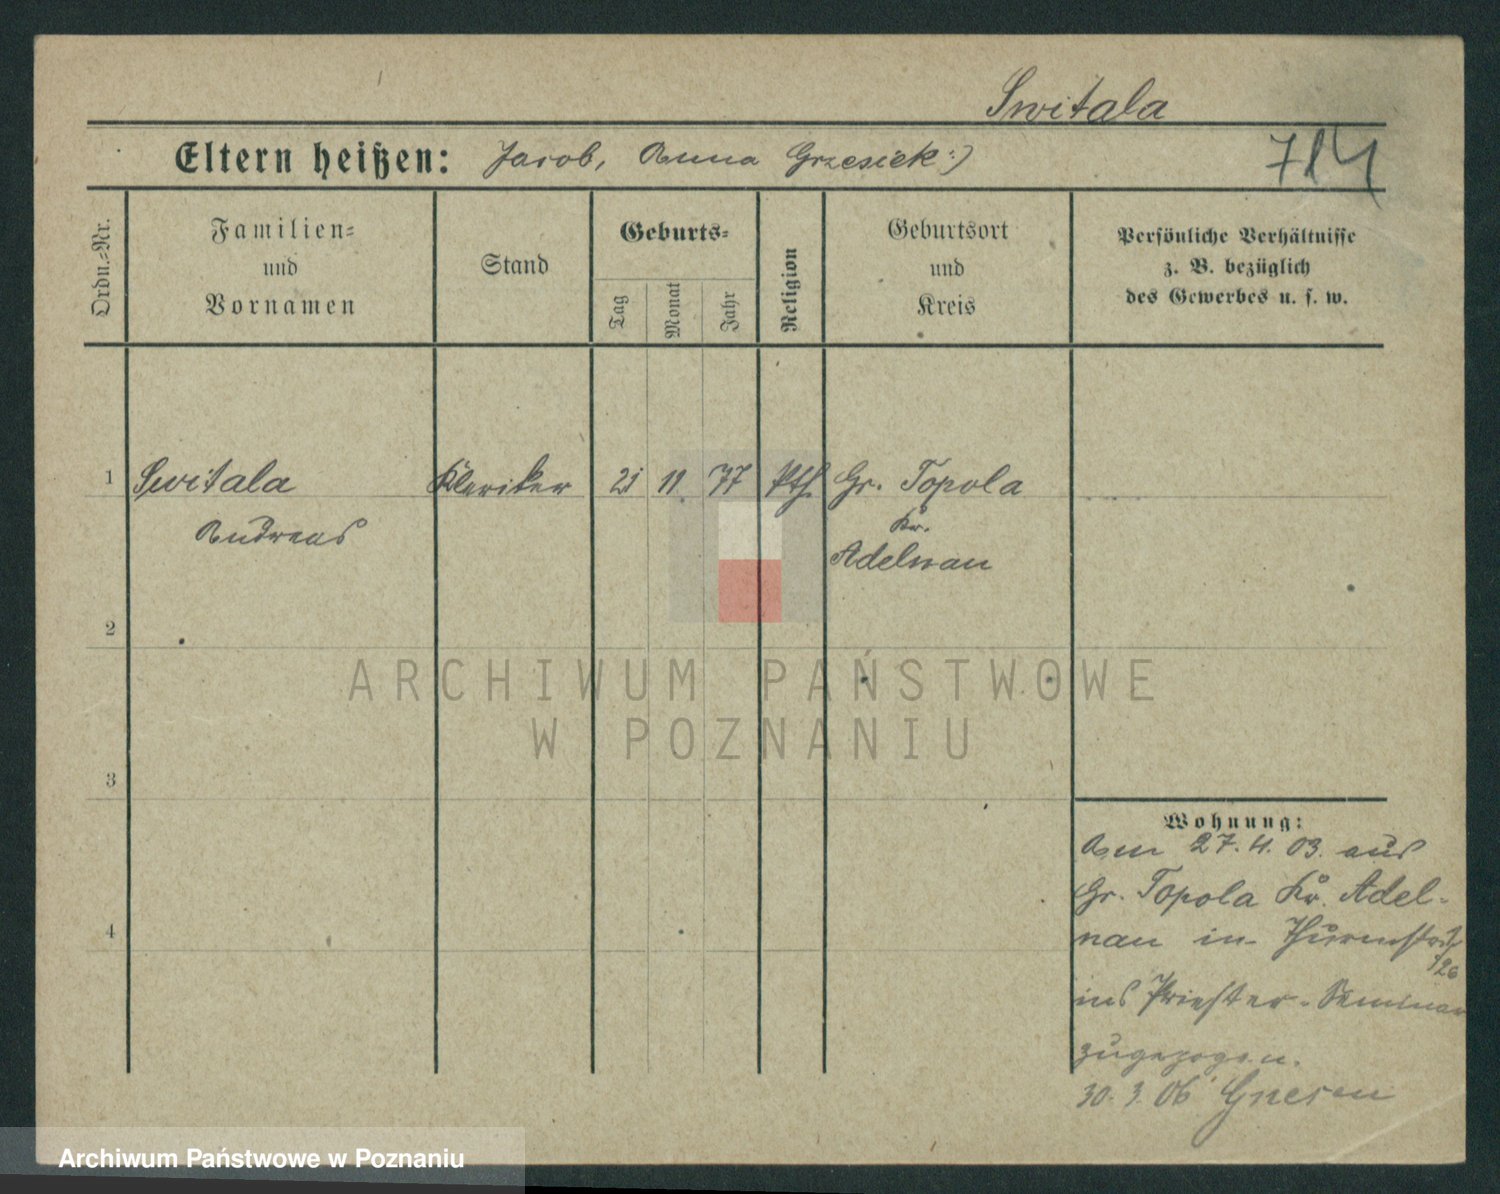 Switala
Eltern heißen: Jacob, Anna Grzesiek:)
714
Ordn.-Nr.
Familien-
und
Vornamen
Stand
Geburts-
Tag
Monat
Jahr
Religion
Geburtsort
und
Kreis
Persönliche Verhältnisse
z. B. bezüglich
des Gewerbes u. s. w.
1 Switala Kleriker 21 11 77 kth Gr. Topola
Andreas Kr.
Adelnau
2
3
4
Wohnung:
Am 27.4.03. aus
Gr. Topola Kr. Adel-
nau in Thurmstr.
ins Priester-Seminar
zugezogen.
30.3.06 Gnesen
ARCHIWUM PAŃSTWOWE
W POZNANIU
Archiwum Państwowe w Poznaniu